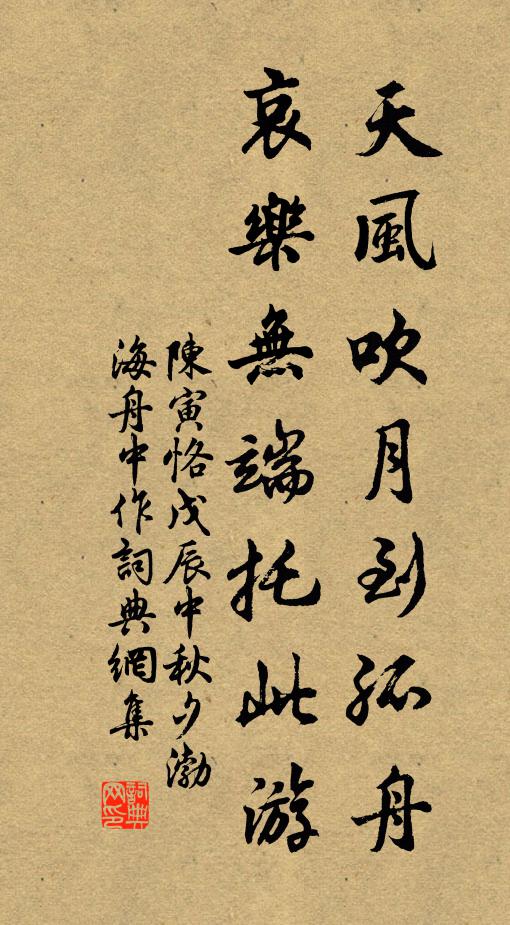 天風吹月到孤舟
哀樂無端托此游
陳寅恪戊辰中秋夕渤
海舟中作詞典網集
詞典
网印